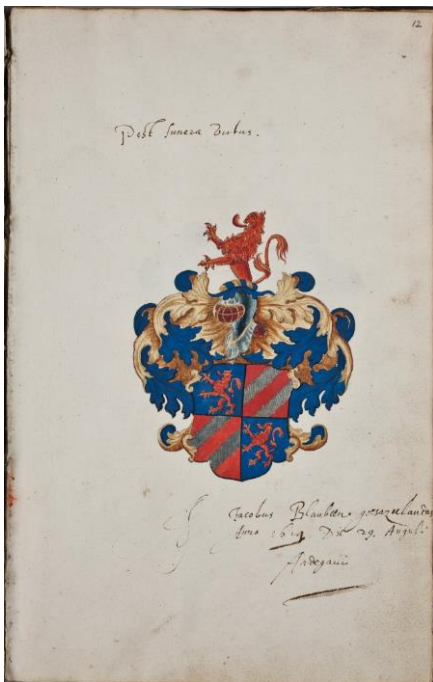 12
Post funera virtus.
Jacobus Blaubeen goesazeelandus
Anno 1619 Die 29. Augusti
Andegavii